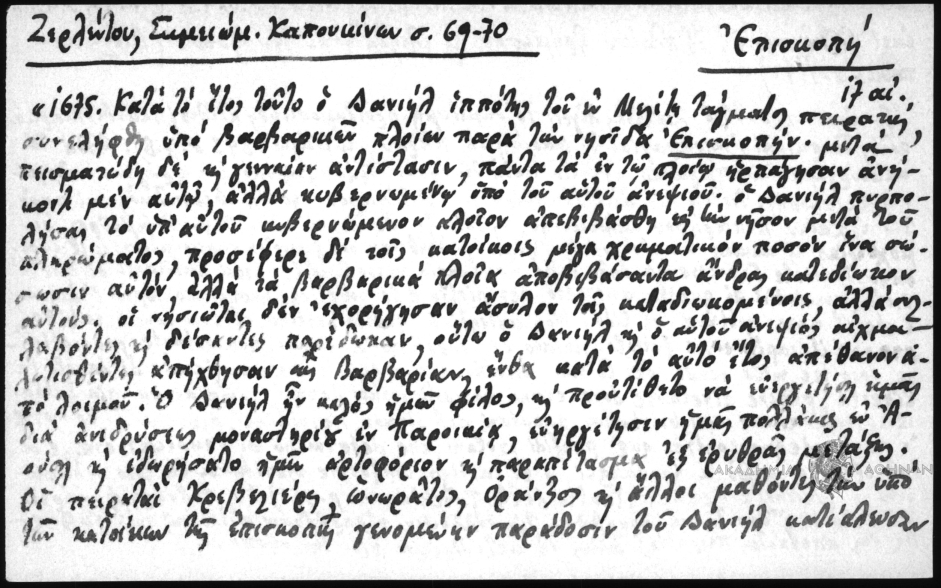 Ζερλέντου, Σημειώμ. Καπουκίνων σ. 69-70
Ἐπισκοπή
17 αἰ.
«1675. Κατὰ τὸ ἔτος τοῦτο ὁ Δανιήλ ἱππότης τοῦ ἐν Μελίτῃ τάγματος, πειρατής,
συνελήφθη ὑπὸ βαρβαρικῶν πλοίων παρὰ τὴν νησῖδα Ἐπισκοπήν. μετὰ
πεισματώδη δὲ κ γενναίαν ἀντίστασιν, πάντα τὰ ἐν τῷ πλοίῳ ἥρπαγησαν ἀνή-
κοντα μὲν αὐτῷ, ἀλλὰ κυβερνωμένῳ ὑπὸ τοῦ αὐτοῦ ἀνεψιοῦ. ὁ Δανιήλ πυρπο-
λήσας τὸ ὑπ' αὐτοῦ κυβερνώμενον πλοῖον ἀπεβιβάσθη εἰς τὴν νῆσον μετὰ τοῦ
πληρώματος, προσέφερε δὲ τοῖς κατοίκοις μέγα χρηματικὸν ποσὸν ἵνα σώ-
σωσιν αὐτόν, ἀλλὰ τὰ βαρβαρικὰ πλοῖα ἀποβιβάσαντα ἄνδρας κατεδίωκον
αὐτούς. οἱ νησιῶται δὲν ἐχορήγησαν ἄσυλον τοῖς καταδιωκομένοις, ἀλλὰ συλ-
λαβόντες κ δέσαντες παρέδωκαν, οὕτω ὁ Δανιήλ κ ὁ αὐτοῦ ἀνεψιός αἰχμα-
λωτισθέντες ἀπήχθησαν εἰς Βαρβαρίαν, ἔνθα κατὰ τὸ αὐτὸ ἔτος ἀπέθανον ἀ-
πὸ λοιμοῦ. Ὁ Δανιήλ ἦν καλὸς ἡμῶν φίλος, κ προὐτίθετο νὰ εὐεργετήσῃ ἡμᾶς
διὰ ἀνιδρύσεως μοναστηρίου ἐν Παροικίᾳ, εὐηργέτησεν ἡμᾶς πολλάκις ἐν Ἀ-
ούσῃ κ ἐδωρήσατο ἡμῖν ἀρτοφόριον κ παραπέτασμα ἐξ ἐρυθρᾶς μετάξης.
Οἱ πειραταὶ Κρεβελιέρης, ὡνωρᾶτος, Ὀράντζος κ ἄλλοι μαθόντες τὴν ὑπὸ
τῶν κατοίκων τῆς ἐπισκοπῆς γενομένην παράδοσιν τοῦ Δανιήλ κατέπλευσαν
ΑΚΑΔΗΜΙΑ ΑΘΗΝΩΝ